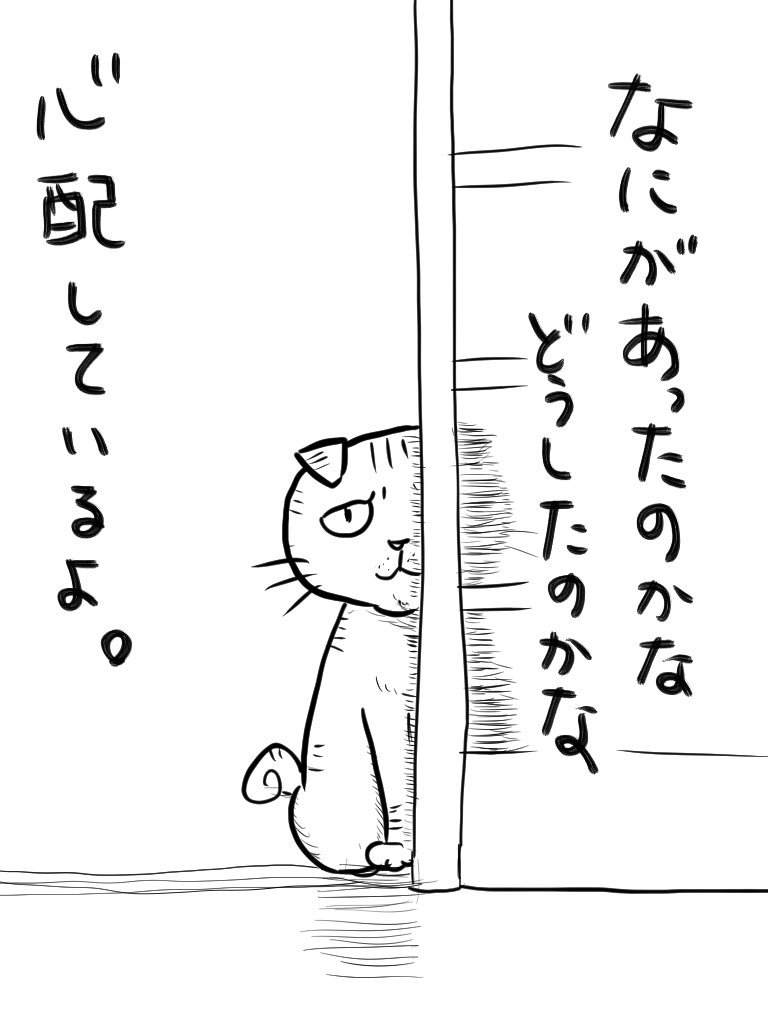 なにがあったのかな
どうしたのかな
心配しているよ。